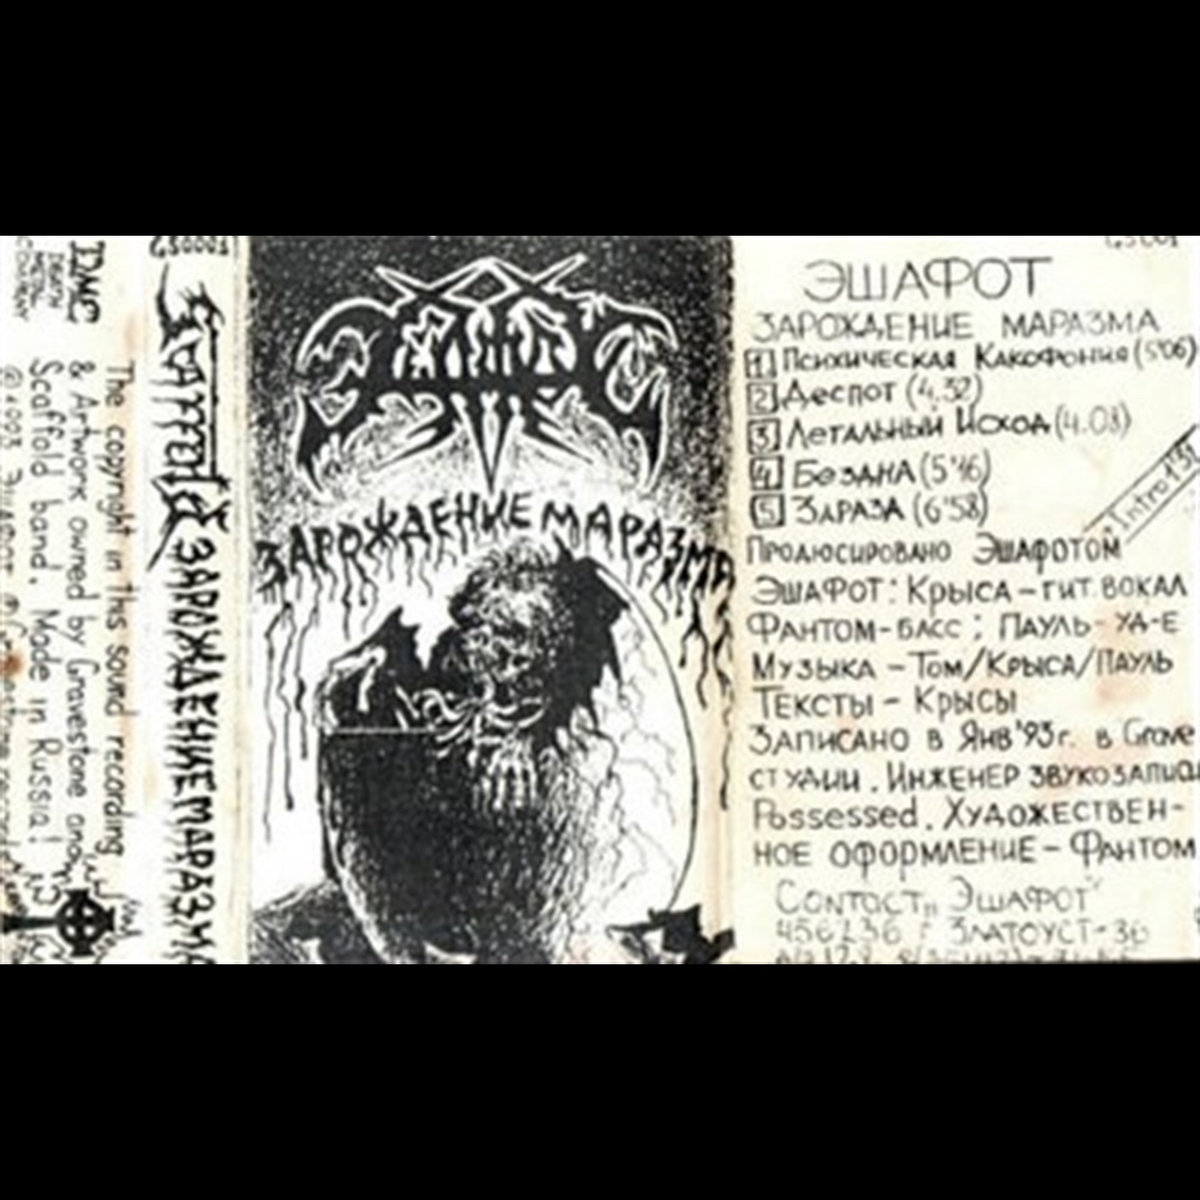 DMC
DEATH
METAL
COMPANY
The copyright in this sound recording
& Artwork owned by Gravestone and
Scaffold band. Made in Russia!
GS0001
Scaffold
ЗАРОЖДЕНИЕ МАРАЗМА
ЭШАФОТ
ЗАРОЖДЕНИЕ МАРАЗМА
GS001
ЭШАФОТ
ЗАРОЖДЕНИЕ МАРАЗМА
1 Психическая Какофония (5'06)
2 Деспот (4.32)
3 Летальный Исход (4.08)
4 Бездна (5'46)
5 Зараза (6'58)
+ Intro
Продюсировано Эшафотом
Эшафот: Крыса – гит. вокал
Фантом – басс; Пауль – уд-е
Музыка – Том/Крыса/Пауль
Тексты – Крысы
Записано в Янв '93г. в Grave
студии. Инженер звукозаписи
Possessed. Художествен-
ное оформление – Фантом
Contact: "Эшафот"
456236 г. Златоуст-36